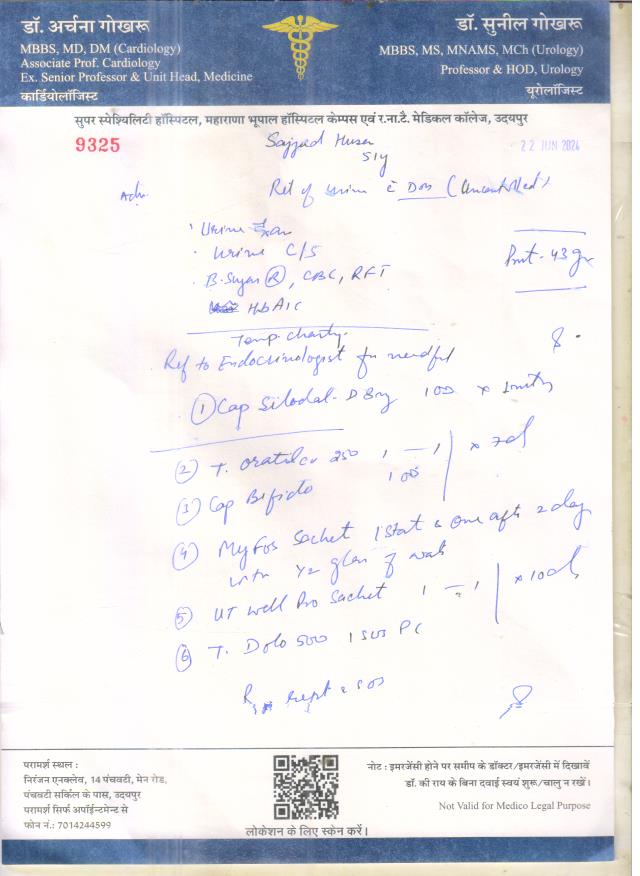 डॉ. अर्चना गोखरू
MBBS, MD, DM (Cardiology)
Associate Prof. Cardiology
Ex. Senior Professor & Unit Head, Medicine
कार्डियोलॉजिस्ट
डॉ. सुनील गोखरू
MBBS, MS, MNAMS, MCh (Urology)
Professor & HOD, Urology
यूरोलॉजिस्ट
सुपर स्पेश्यिलिटी हॉस्पिटल, महाराणा भूपाल हॉस्पिटल केम्पस एवं र.ना.टै. मेडिकल कॉलेज, उदयपुर
9325
Sajjad Husen
51y
22 JUN 2024
Adv.
Ret of urine c̄ DM (Uncontrolled)
Urine
Urine C/S
B. Sugar R, CBC, RFT
HbA1c
Prost - 43 gm
Temp. charting
Ref to Endocrinologist for needful
① Cap Silodal-D 8mg 1 OD x 1 month
② T. Oratil CV 250 1 — 1 x 7d
③ Cap Bifido 1 OD
④ Myfos Sachet 1 Stat & One after 2 day
with 1/2 glass of water
⑤ UT Well Pro Sachet 1 — 1 x 10d
⑥ T. Dolo 500 1 SOS PC
परामर्श स्थल :
निरंजन एनक्लेव, 14 पंचवटी, मेन रोड,
पंचवटी सर्किल के पास, उदयपुर
परामर्श सिर्फ अपॉईन्टमेन्ट से
फोन नं.: 7014244599
लोकेशन के लिए स्केन करें।
नोट : इमरजेंसी होने पर समीप के डॉक्टर/इमरजेंसी में दिखावें
डॉ. की राय के बिना दवाई स्वयं शुरू/चालु न रखें।
Not Valid for Medico Legal Purpose